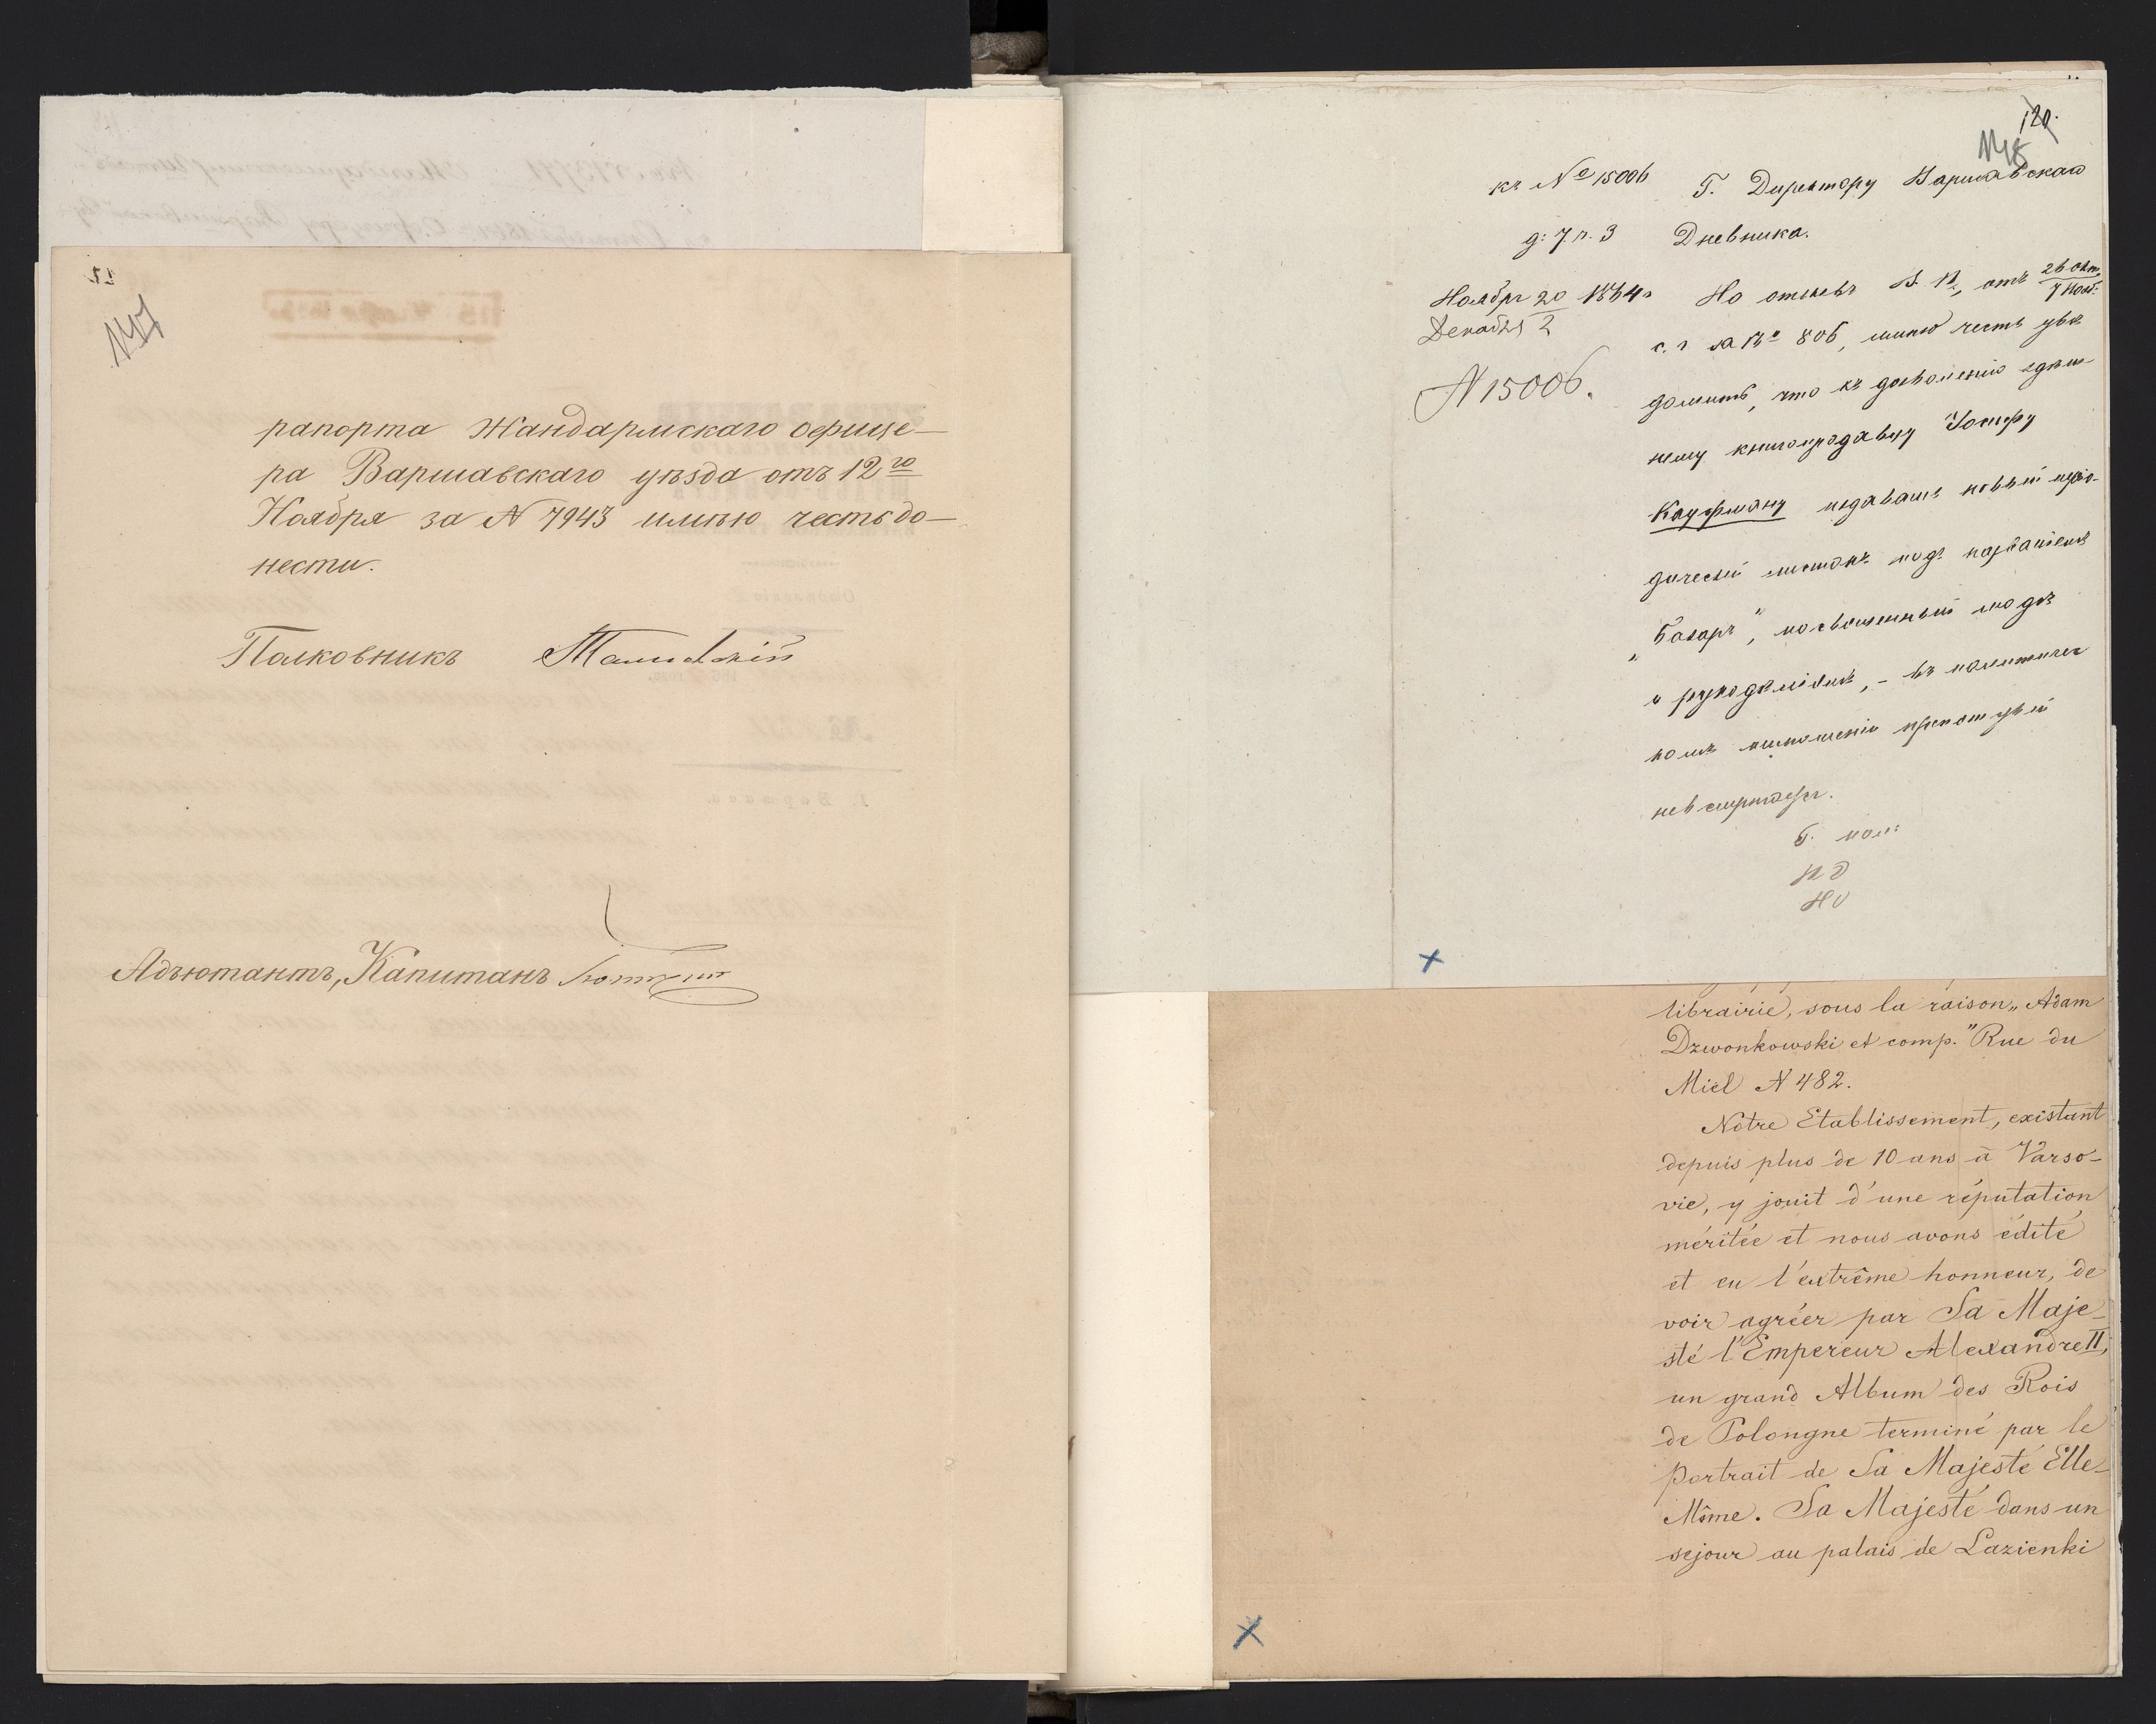 147
рапорта Жандармскаго офице-
ра Варшавскаго уѣзда отъ 12го
Ноября за N 7943 имѣю честь до-
нести.
Полковникъ
Адъютантъ, Капитанъ
120.
148
къ No 15006
Г. Директору Варшавскаго
д: 7. п. 3
Дневника.
Ноября 20 1864 г
Декабря 2
N 15006.
На отзывъ В. П., отъ 26 Окт. / 7 Нояб.
с. г. за No 806, имѣю честь увѣ
домить, что къ дозволенію здѣш
нему книгопродавцу Іосифу
Кауфману издавать новый періо-
дическій листокъ подъ названіемъ
„Базаръ", посвященный модѣ
и рукодѣліямъ, - въ политичес
комъ отношеніи препятствій
не встрѣчается.
librairie, sous la raison „Adam
Dzwonkowski et comp." Rue du
Miel N 482.
Nôtre Etablissement, existant
depuis plus de 10 ans à Varso-
vie, y jouit d'une réputation
méritée et nous avons édité
et eu l'extrême honneur, de
voir agréer par Sa Maje-
sté l'Empereur Alexandre II,
un grand Album des Rois
de Polongne terminé par le
portrait de Sa Majesté Elle-
Même. Sa Majesté dans un
sejour au palais de Lazienki